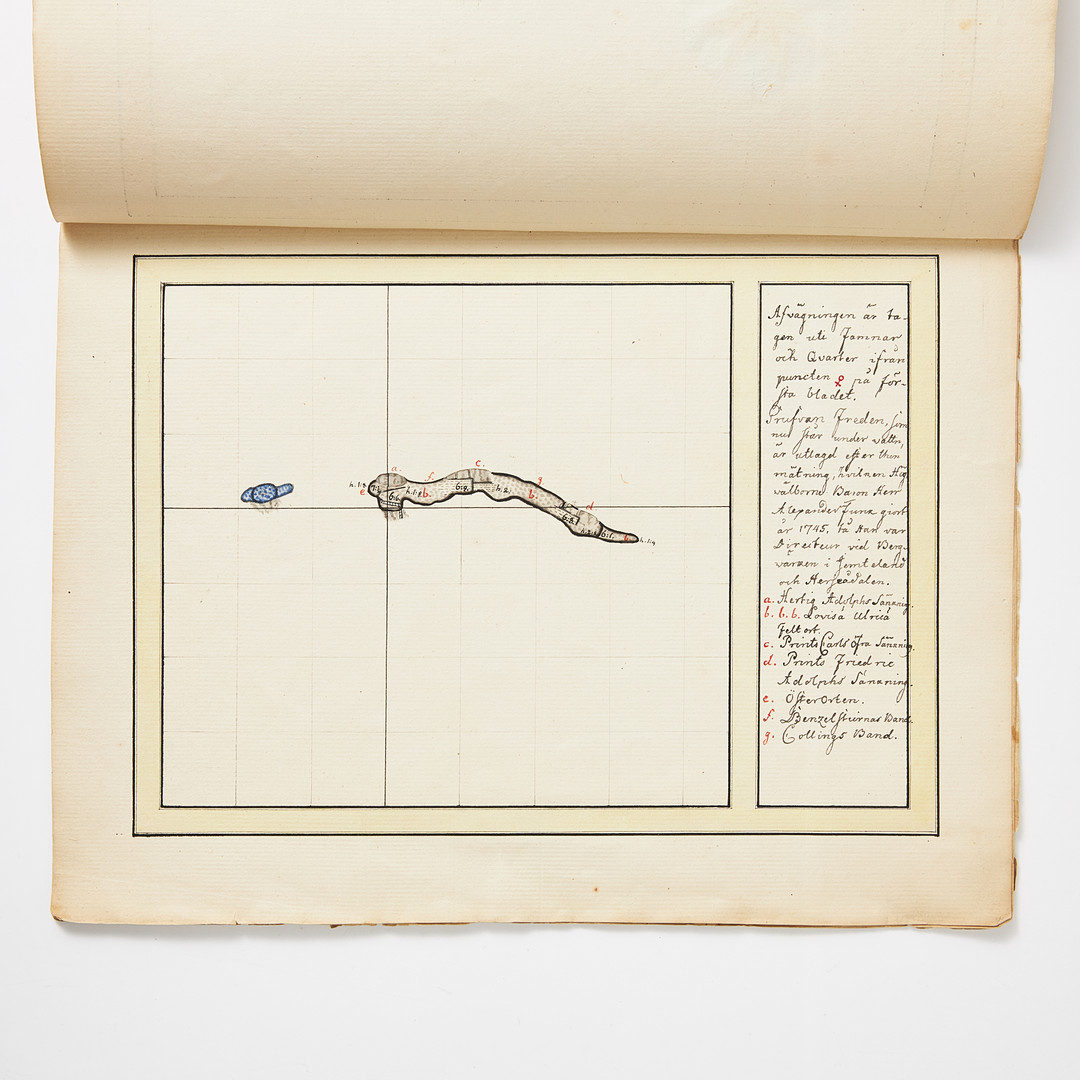 Afvägningen är ta-
gen uti Famnar
och Qvarter ifrån
puncten ♀ på för-
sta bladet.
Grufvan Freden, som
nu står under vattn,
är utlagd efter then
mätning, hvilken Hög
välborne Baron Herr
Alexander Funk giort
år 1745, tå Han var
Directeur vid Berg-
värken i Jemteland
och Herjeådalen.
a. Hertig Adolphs Sänkning.
b. b. b. Lovisa Ulrica
Feltort.
c. Prints Carls öfra Sänkning.
d. Prints Friedric
Adolphs Sänkning.
e. ÖsterOrten.
f. Benzelstiernas Band.
g. Collings Band.
a.
c.
f.
g
h.
e
b.
b.
d
b.